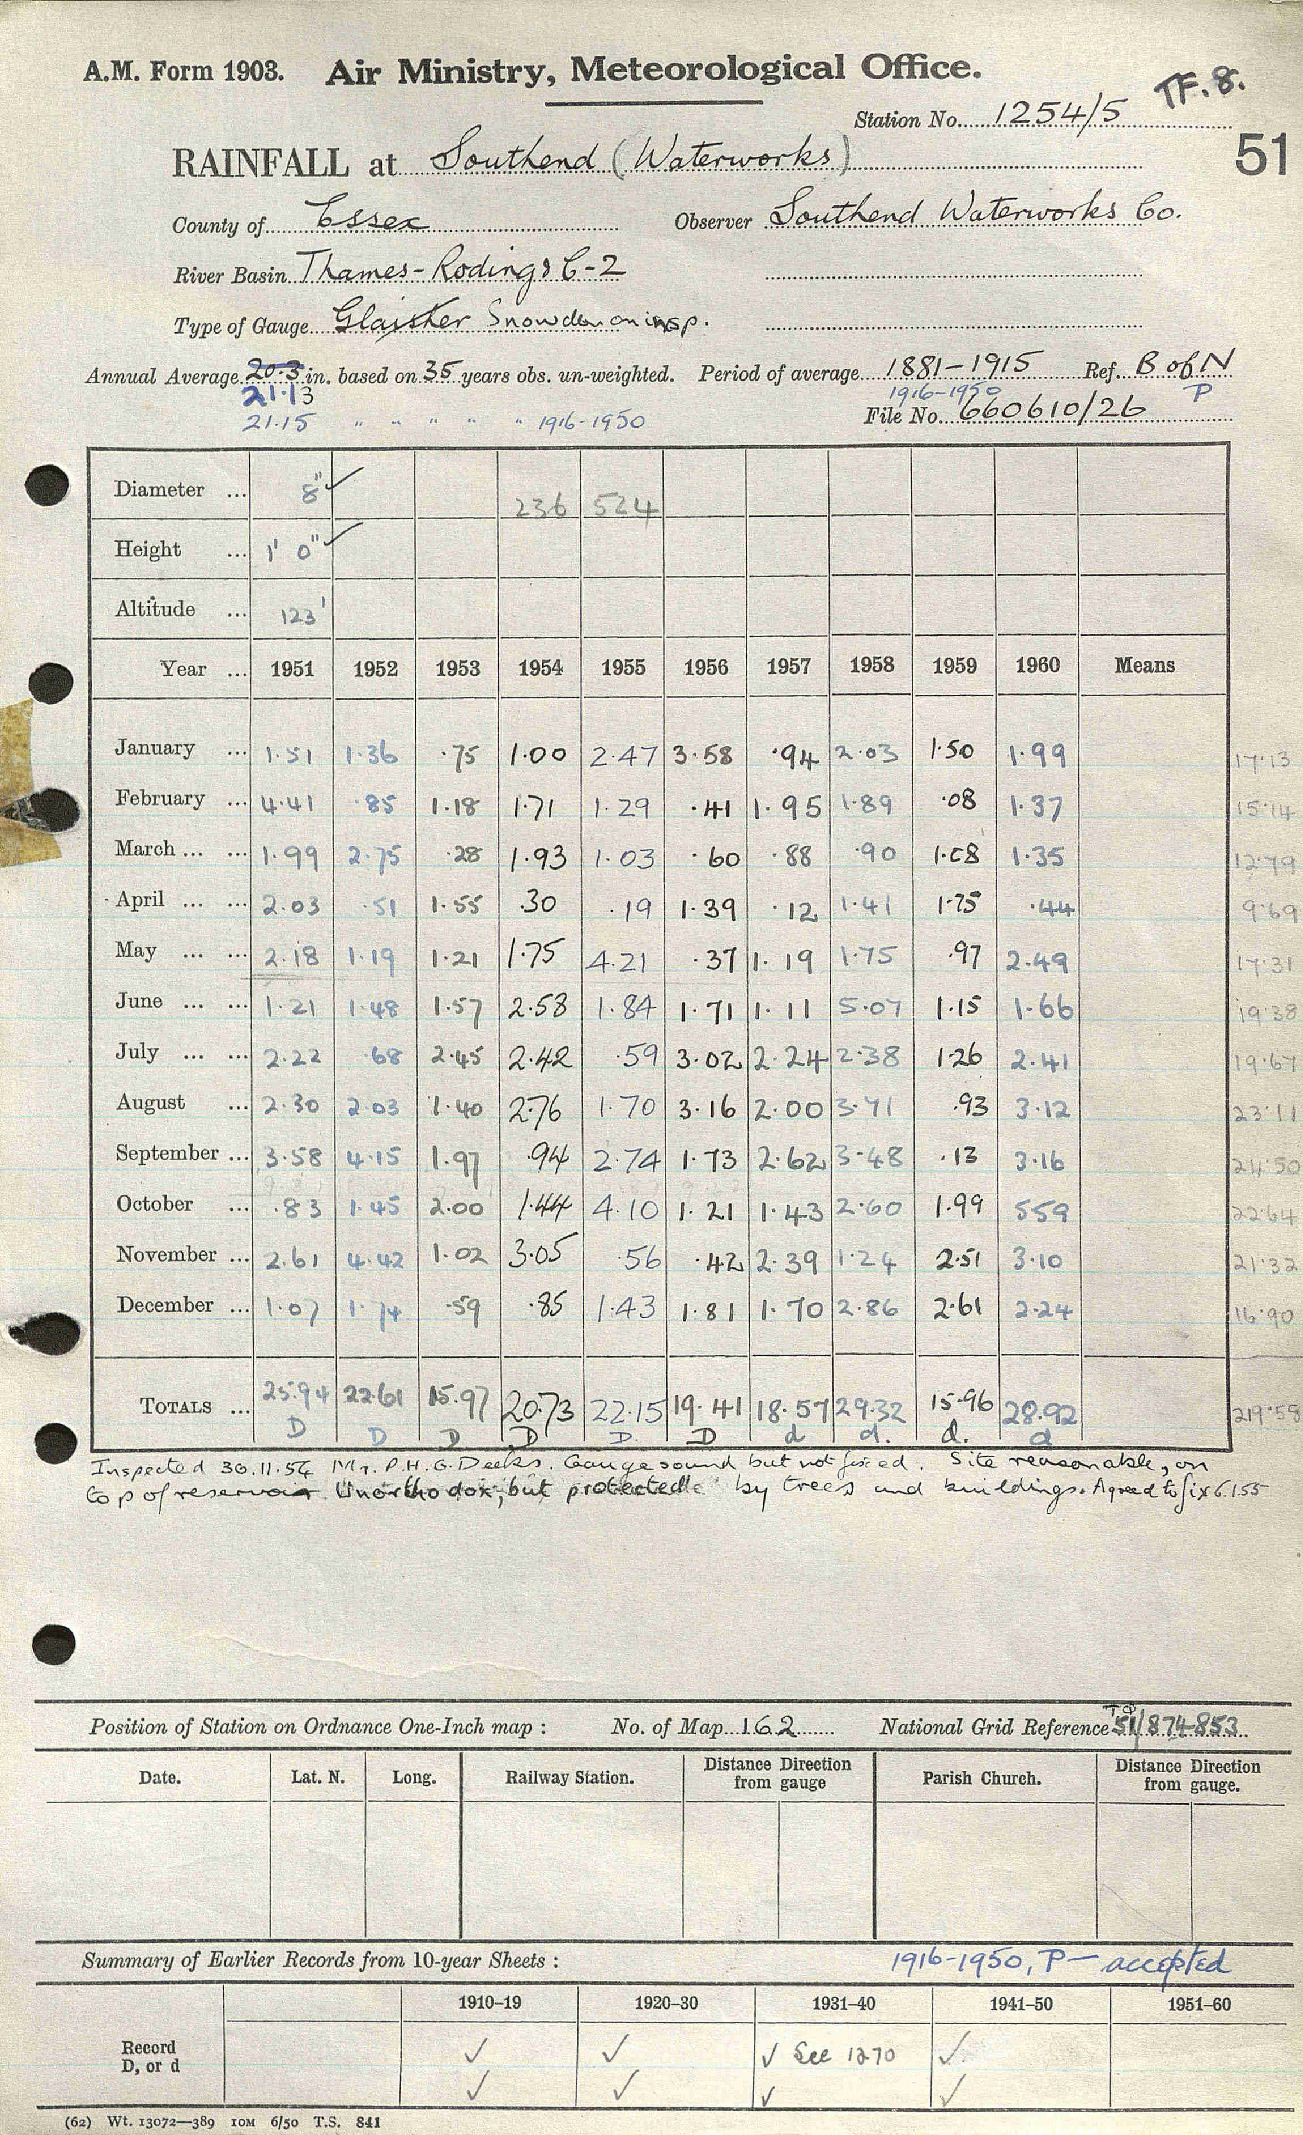 A.M. Form 1903. Air Ministry, Meteorological Office.
TF.8.
Station No. 1254/5
51
RAINFALL at Southend (Waterworks)
County of Essex Observer Southend Waterworks Co.
River Basin Thames-Rodings C-2
Type of Gauge Glaisher Snowdon on insp.
Annual Average 20.3 in. based on 35 years obs. un-weighted. Period of average 1881-1915 Ref. B of N
21.13 1916-1950 P
21.15 " " " " " 1916-1950 File No. 660610/26
Diameter ... 8" 236 524
Height ... 1' 0"
Altitude ... 123'
Year ... 1951 1952 1953 1954 1955 1956 1957 1958 1959 1960 Means
January ... 1.51 1.36 .75 1.00 2.47 3.58 .94 2.03 1.50 1.99 17.13
February ... 4.41 .85 1.18 1.71 1.29 .41 1.95 1.89 .08 1.37 15.14
March ... ... 1.99 2.75 .28 1.93 1.03 .60 .88 .90 1.08 1.35 12.79
April ... ... 2.03 .51 1.55 .30 .19 1.39 .12 1.41 1.75 .44 9.69
May ... ... 2.18 1.19 1.21 1.75 4.21 .37 1.19 1.75 .97 2.49 17.31
June ... ... 1.21 1.48 1.57 2.58 1.84 1.71 1.11 5.07 1.15 1.66 19.38
July ... ... 2.22 .68 2.45 2.42 .59 3.02 2.24 2.38 1.26 2.41 19.67
August ... 2.30 2.03 1.40 2.76 1.70 3.16 2.00 3.71 .93 3.12 23.11
September ... 3.58 4.15 1.97 .94 2.74 1.73 2.62 3.48 .13 3.16 24.50
October ... .83 1.45 2.00 1.44 4.10 1.21 1.43 2.60 1.99 5.59 22.64
November ... 2.61 4.42 1.02 3.05 .56 .42 2.39 1.24 2.51 3.10 21.32
December ... 1.07 1.74 .59 .85 1.43 1.81 1.70 2.86 2.61 2.24 16.90
TOTALS ... 25.94 22.61 15.97 20.73 22.15 19.41 18.57 29.32 15.96 28.92 219.58
D D D D D D d d. d. d
Inspected 30.11.54 Mr. P.H.G. Deeks. Gauge sound but not fixed. Site reasonable, on
top of reservoir. Unorthodox, but protected by trees and buildings. Agreed to fix 6.1.55
Position of Station on Ordnance One-Inch map : No. of Map 162 National Grid Reference TQ 51/874853
Date. Lat. N. Long. Railway Station. Distance Direction from gauge Parish Church. Distance Direction from gauge.
Summary of Earlier Records from 10-year Sheets : 1916-1950, P - accepted
1910-19 1920-30 1931-40 1941-50 1951-60
Record ✓ ✓ ✓ See 1270 ✓
D, or d ✓ ✓ ✓ ✓
(62) Wt. 13072—389 10M 6/50 T.S. 841